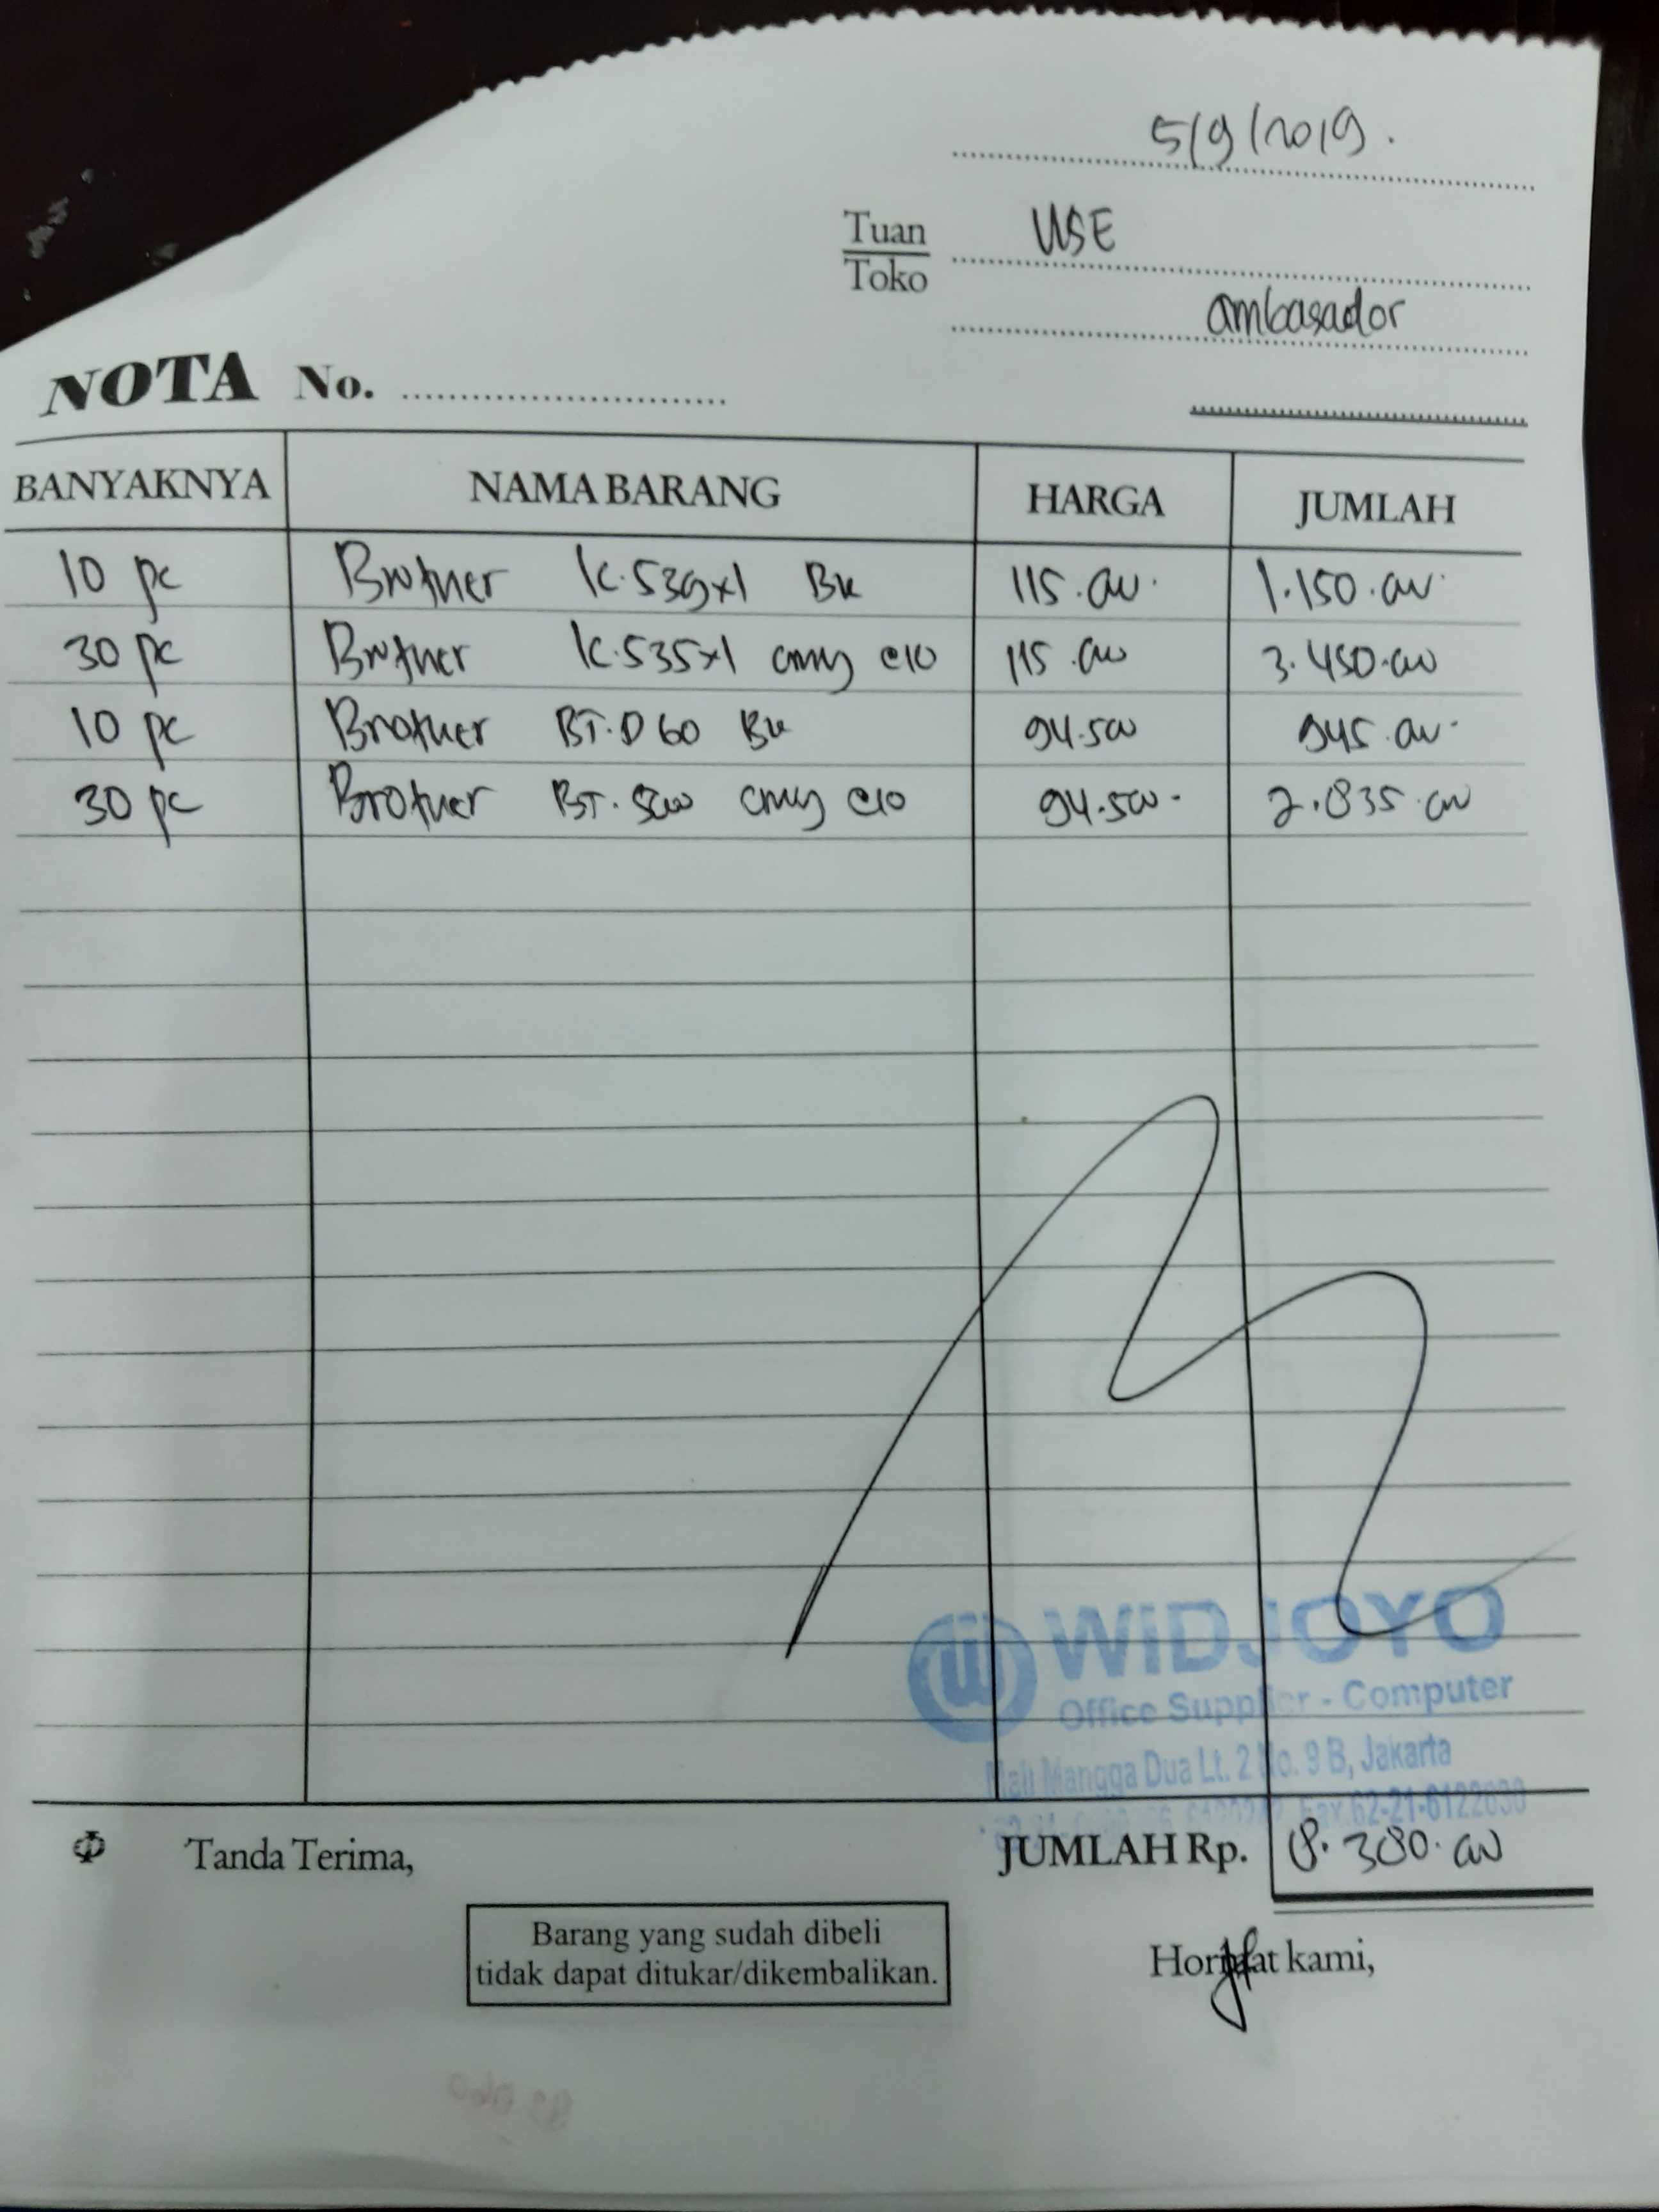 5/9/2019.
Tuan
Toko
USE
ambasador
NOTA No.
BANYAKNYA NAMA BARANG HARGA JUMLAH
10 pc Brother lc.539xl Bk 115.000. 1.150.000.
30 pc Brother lc.535xl cmy @10 115.000 3.450.000
10 pc Brother BT.D60 Bk 94.500 945.000.
30 pc Brother BT.5000 cmy @10 94.500. 2.835.000
WIDJOYO
Office Supplier - Computer
Mall Mangga Dua Lt. 2 No. 9 B, Jakarta
Fax.62-21-6122630
Tanda Terima,
JUMLAH Rp. 8.380.000
Barang yang sudah dibeli
tidak dapat ditukar/dikembalikan.
Hormat kami,